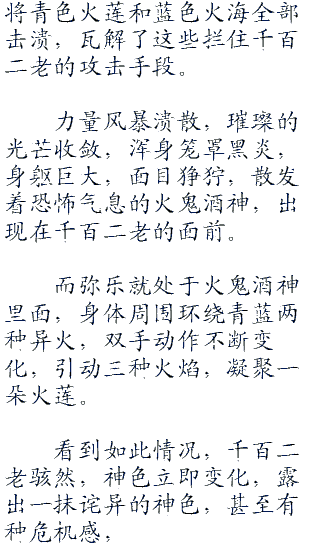 将青色火莲和蓝色火海全部
击溃，瓦解了这些拦住千百
二老的攻击手段。
力量风暴溃散，璀璨的
光芒收敛，浑身笼罩黑炎，
身躯巨大，面目狰狞，散发
着恐怖气息的火鬼酒神，出
现在千百二老的面前。
而弥乐就处于火鬼酒神
里面，身体周围环绕青蓝两
种异火，双手动作不断变
化，引动三种火焰，凝聚一
朵火莲。
看到如此情况，千百二
老骇然，神色立即变化，露
出一抹诧异的神色，甚至有
种危机感，